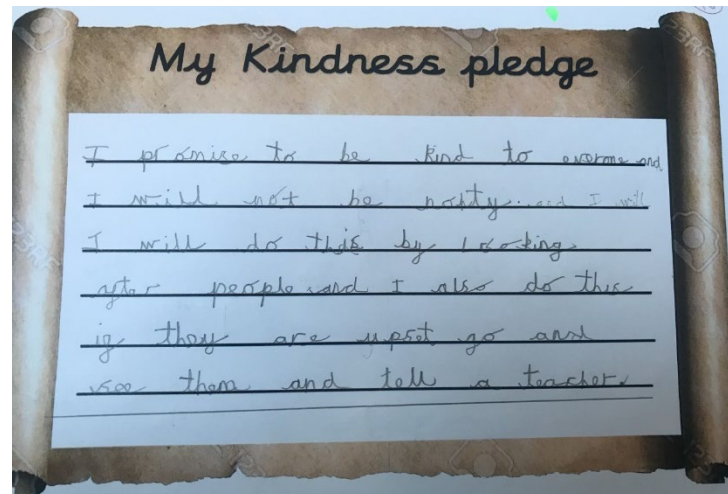 My Kindness pledge
I promise to be kind to everyone and
I will not be nosty.. and I will
I will do this by looking
after people and I also do this
if they are upset go and
see them and tell a teacher.